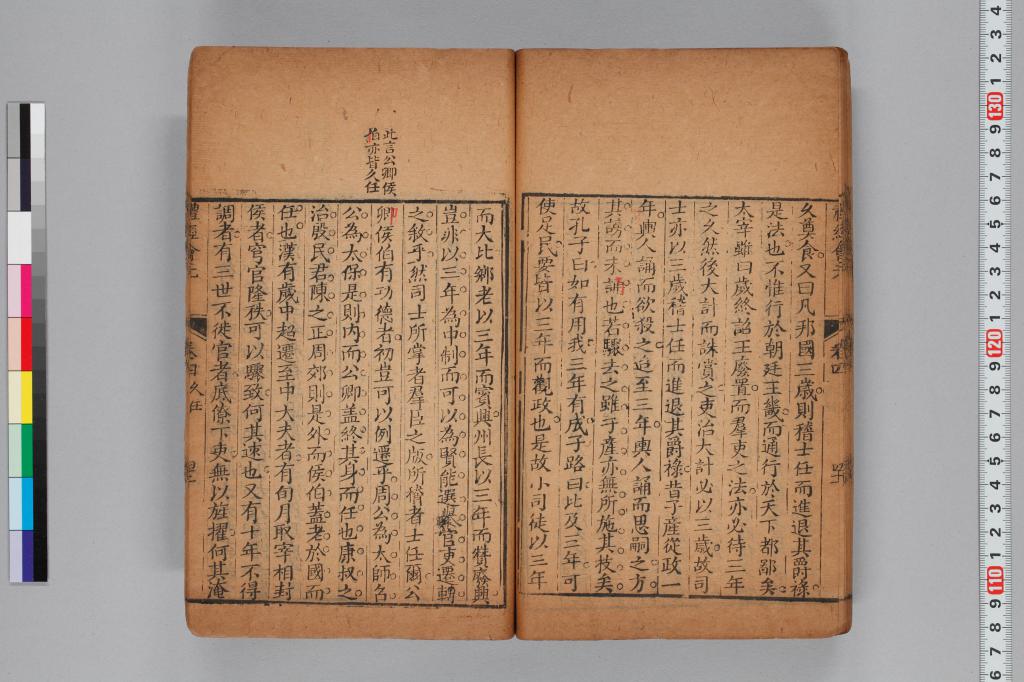 久奠食又曰凡邦國三歲則稽士任而進退其爵祿
是法也不惟行於朝廷王畿而通行於天下都鄙矣
太宰雖曰歲終詔王廢置而羣吏之法亦必待三年
之久然後大計而誅賞之吏治大計必以三歲故司
士亦以三歲稽士任而進退其爵祿昔子產從政一
年輿人誦而欲殺之迨至三年輿人誦而思嗣之方
其謗而未誦也若驟去之雖子產亦無所施其技矣
故孔子曰如有用我三年有成子路曰比及三年可
使足民要皆以三年而觀政也是故小司徒以三年
此言公卿侯
伯亦皆久任
而大比鄉老以三年而賓興州長以三年而贊廢興
豈非以三年為中制而可以為賢能選舉官吏遷轉
之敘乎然司士所掌者羣臣之版所稽者士任爾公
卿侯伯有功德者初豈可以例還乎周公為太師召
公為太保是則內而公卿蓋終其身而任也康叔之
治殷民君陳之正周郊則是外而侯伯蓋老於國而
任也漢有歲中超遷至中大夫者有旬月取宰相封
侯者穹官隆秩可以驟致何其速也又有十年不得
調者有三世不徙官者底僚下吏無以旌擢何其淹
禮經會元
卷四
久任